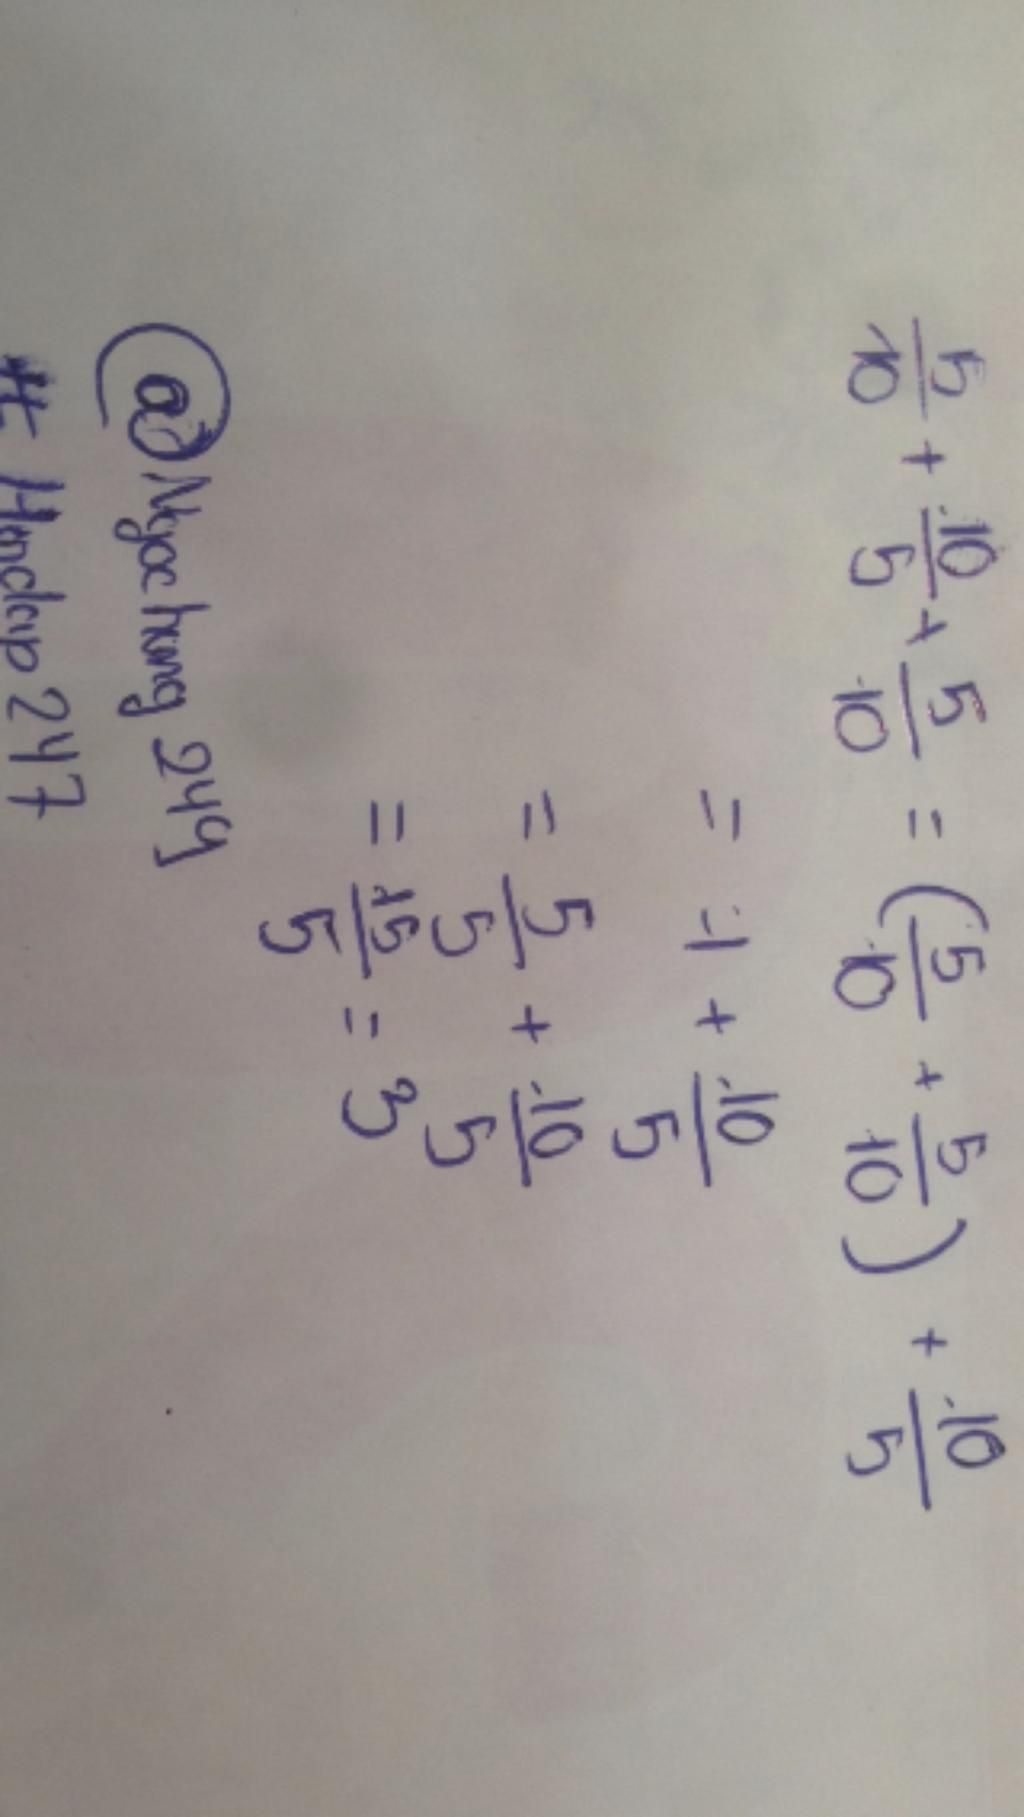 5/10 + 10/5 + 5/10 = (5/10 + 5/10) + 10/5
= 1 + 10/5
= 5/5 + 10/5
= 15/5 = 3
@Ngochung249
# Hoidap247